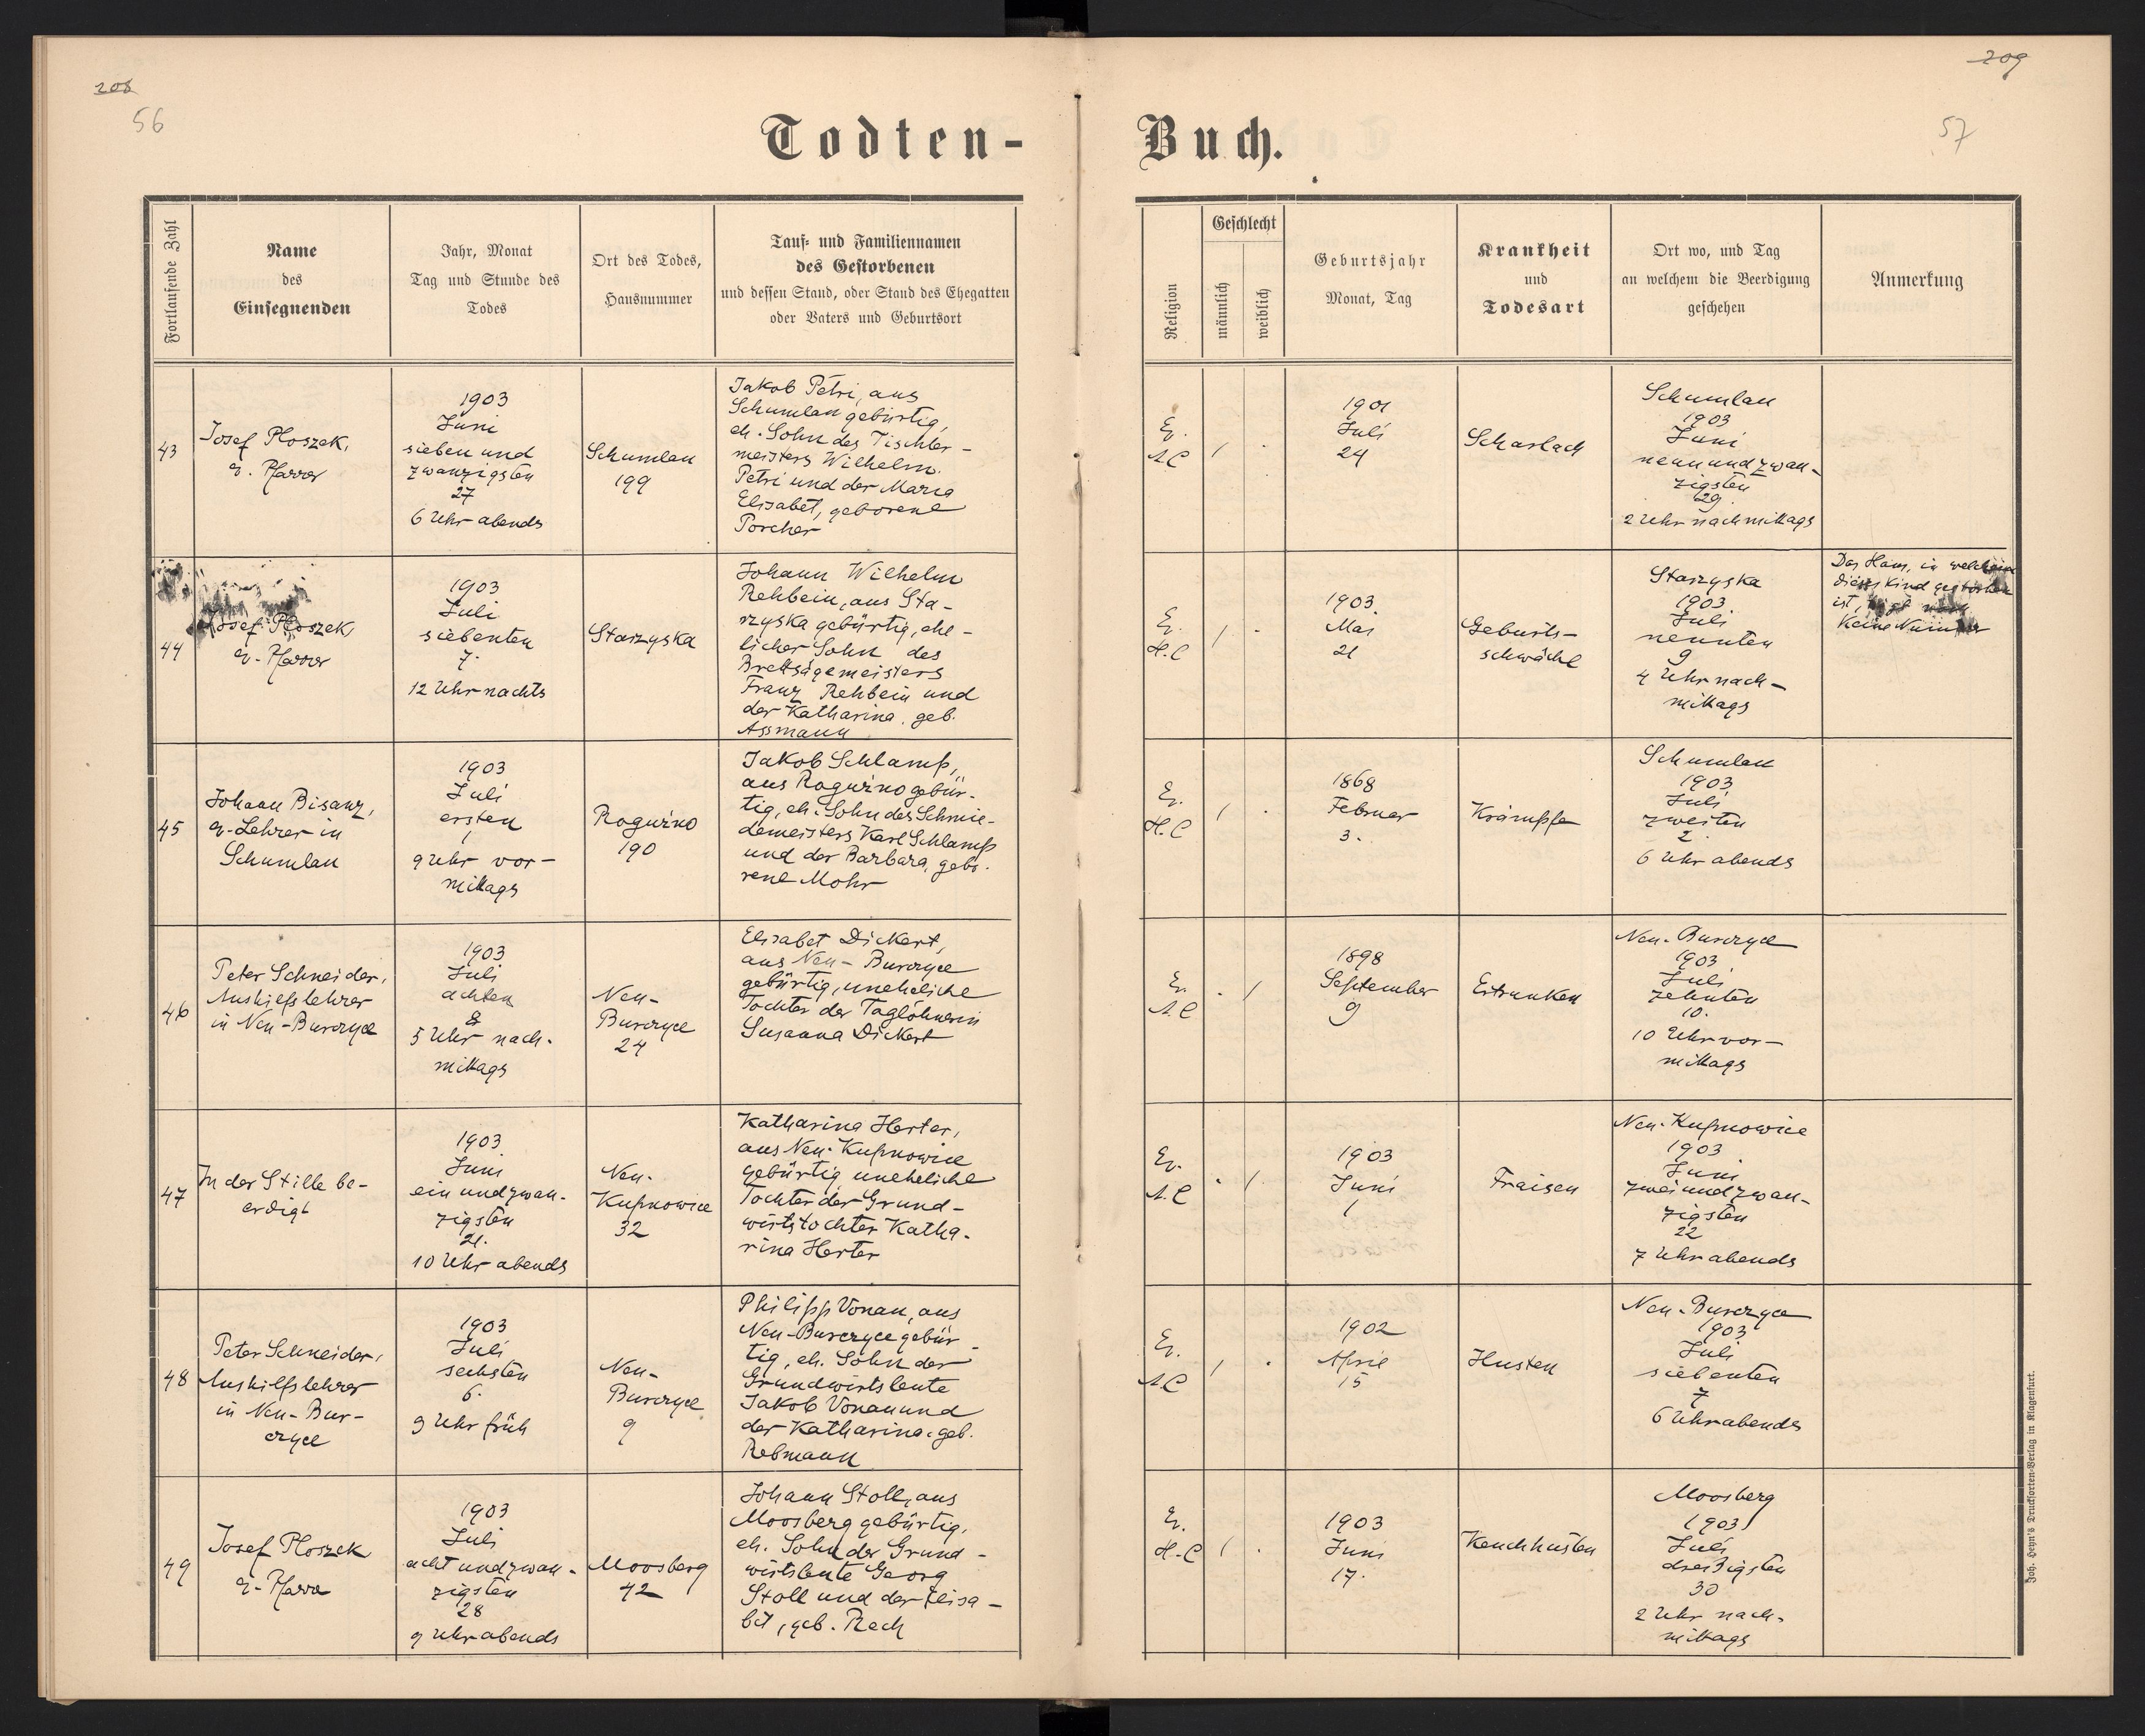 208
56
209
57
Todten-
Buch.
Fortlaufende Zahl
Name
des
Einsegnenden
Jahr, Monat
Tag und Stunde des
Todes
Ort des Todes,
Hausnummer
Tauf- und Familiennamen
des Gestorbenen
und dessen Stand, oder Stand des Ehegatten
oder Vaters und Geburtsort
Religion
Geschlecht
männlich
weiblich
Geburtsjahr
Monat, Tag
Krankheit
und
Todesart
Ort wo, und Tag
an welchem die Beerdigung
geschehen
Anmerkung
43
Josef Ploszek,
ev. Pfarrer
1903
Juni
sieben und
zwanzigsten
27
6 Uhr abends
Schumlau
199
Jakob Petri, aus
Schumlau gebürtig,
eh. Sohn des Tischler-
meisters Wilhelm
Petri und der Maria
Elisabet, geborene
Porcher
Ev.
A.C
/
1901
Juli
24
Scharlach
Schumlau
1903
Juni
neunundzwan-
zigsten
29
2 Uhr nachmittags
44
Josef Ploszek,
ev. Pfarrer
1903
Juli
siebenten
7.
12 Uhr nachts
Starzyska
Johann Wilhelm
Rehbein, aus Sta-
rzyska gebürtig, ehe-
licher Sohn des
Brettsägemeisters
Franz Rehbein und
der Katharina, geb.
Assmann
Ev.
H.C
/
1903
Mai
21
Geburts-
schwäche
Starzyska
1903
Juli
neunten
9
4 Uhr nach-
mittags
Das Haus, in welchem
dieses Kind gestorben
ist,
keine Nummer
45
Johann Bisanz,
ev. Lehrer in
Schumlau
1903
Juli
ersten
1
9 Uhr vor-
mittags
Roguźno
190
Jakob Schlamp,
aus Roguźno gebür-
tig, eh. Sohn des Schmie-
demeisters Karl Schlamp
und der Barbara, gebo-
rene Mohr
Ev.
H.C
/
1868
Februar
3.
Krämpfe
Schumlau
1903
Juli
zweiten
2.
6 Uhr abends
46
Peter Schneider,
Aushilfslehrer
in Neu-Burczyce
1903
Juli
achten
8
5 Uhr nach-
mittags
Neu-
Burczyce
24
Elisabet Dickert,
aus Neu-Burczyce
gebürtig, uneheliche
Tochter der Taglöhnerin
Susanna Dickert
Ev.
A.C
/
1898
September
9
Ertrunken
Neu-Burczyce
1903
Juli
zehnten
10.
10 Uhr vor-
mittags
47
In der Stille be-
erdigt
1903
Juni
ein und zwan-
zigsten
21.
10 Uhr abends
Neu-
Kupnowice
32
Katharina Herter,
aus Neu-Kupnowice
gebürtig, uneheliche
Tochter der Grund-
wirtstochter Katha-
rina Herter
Ev.
A.C
/
1903
Juni
1
Fraisen
Neu-Kupnowice
1903
Juni
zwei und zwan-
zigsten
22
7 Uhr abends
48
Peter Schneider,
Aushilfslehrer
in Neu-Bur-
czyce
1903
Juli
sechsten
6.
3 Uhr früh
Neu-
Burczyce
9
Philipp Vonau, aus
Neu-Burczyce gebür-
tig, eh. Sohn der
Grundwirtsleute
Jakob Vonau und
der Katharina, geb.
Rebmann
Ev.
A.C
/
1902
April
15
Husten
Neu-Burczyce
1903
Juli
siebenten
7
6 Uhr abends
49
Josef Ploszek
ev. Pfarre
1903
Juli
acht und zwan-
zigsten
28
9 Uhr abends
Moosberg
42
Johann Stoll, aus
Moosberg gebürtig,
eh. Sohn der Grund-
wirtsleute Georg
Stoll und der Elisa-
bet, geb. Rech
Ev.
H.C
/
1903
Juni
17.
Keuchhusten
Moosberg
1903
Juli
dreißigsten
30
2 Uhr nach-
mittags
Joh. Heyn's Drucksorten-Verlag in Klagenfurt.